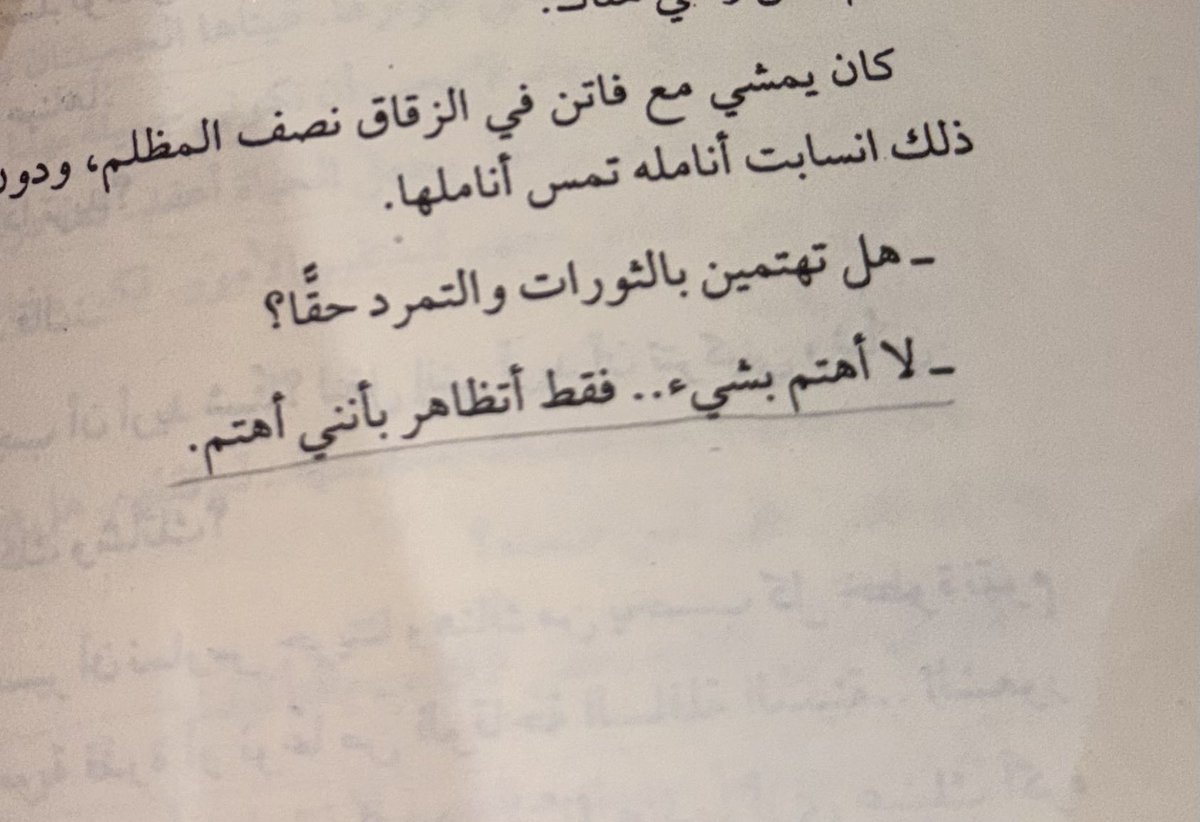 كان يمشي مع فاتن في الزقاق نصف المظلم، ودون
ذلك انسابت أنامله تمس أناملها.
ـ هل تهتمين بالثورات والتمرد حقًّا؟
ـ لا أهتم بشيء.. فقط أتظاهر بأنني أهتم.